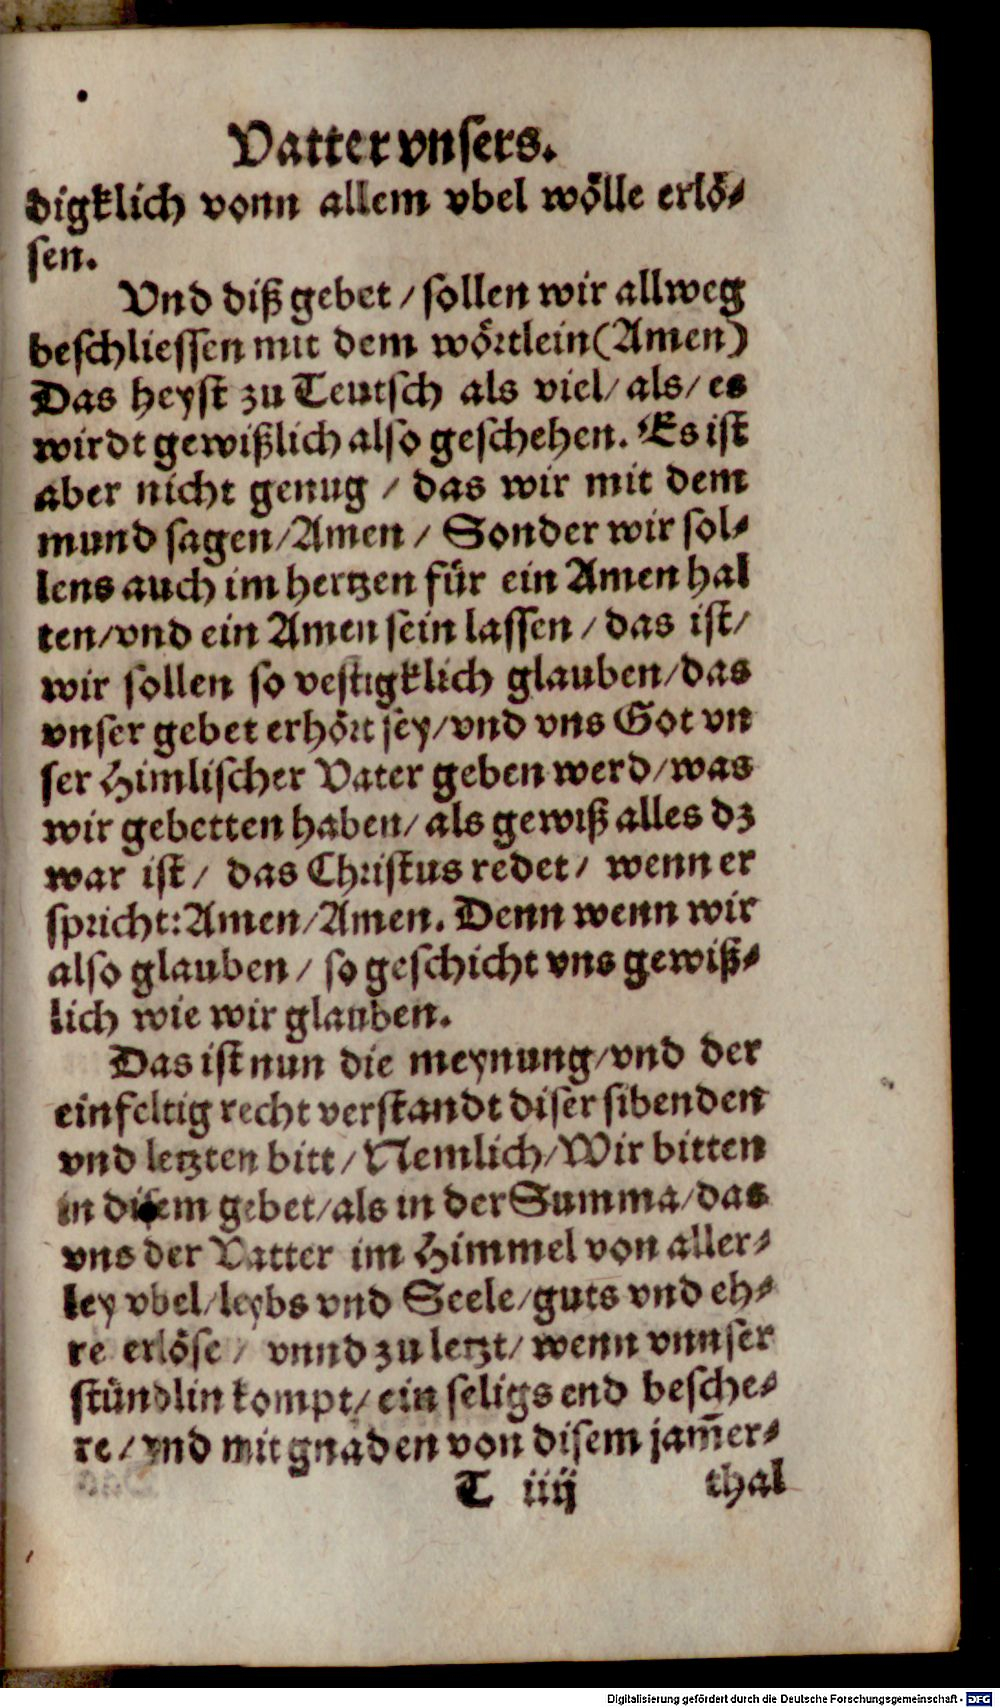 Vatter vnsers.
digklich vonn allem vbel wölle erlö-
sen.
Vnd diß gebet / sollen wir allweg
beschliessen mit dem wörtlein (Amen)
Das heyst zu Teutsch als viel / als / es
wirdt gewißlich also geschehen. Es ist
aber nicht genug / das wir mit dem
mund sagen / Amen / Sonder wir sol-
lens auch im hertzen für ein Amen hal
ten / vnd ein Amen sein lassen / das ist /
wir sollen so vestigklich glauben / das
vnser gebet erhört sey / vnd vns Got vn
ser Himlischer Vater geben werd / was
wir gebetten haben / als gewiß alles dz
war ist / das Christus redet / wenn er
spricht: Amen / Amen. Denn wenn wir
also glauben / so geschicht vns gewiß-
lich wie wir glauben.
Das ist nun die meynung / vnd der
einfeltig recht verstandt diser sibenden
vnd letzten bitt / Nemlich / Wir bitten
in disem gebet / als in der Summa / das
vns der Vatter im Himmel von aller-
ley vbel / leybs vnd Seele / guts vnd eh-
re erlöse / vnnd zu letzt / wenn vnnser
stündlin kompt / ein seligs end besche-
re / vnd mit gnaden von disem jam̃er-
T iiij thal
Digitalisierung gefördert durch die Deutsche Forschungsgemeinschaft - DFG